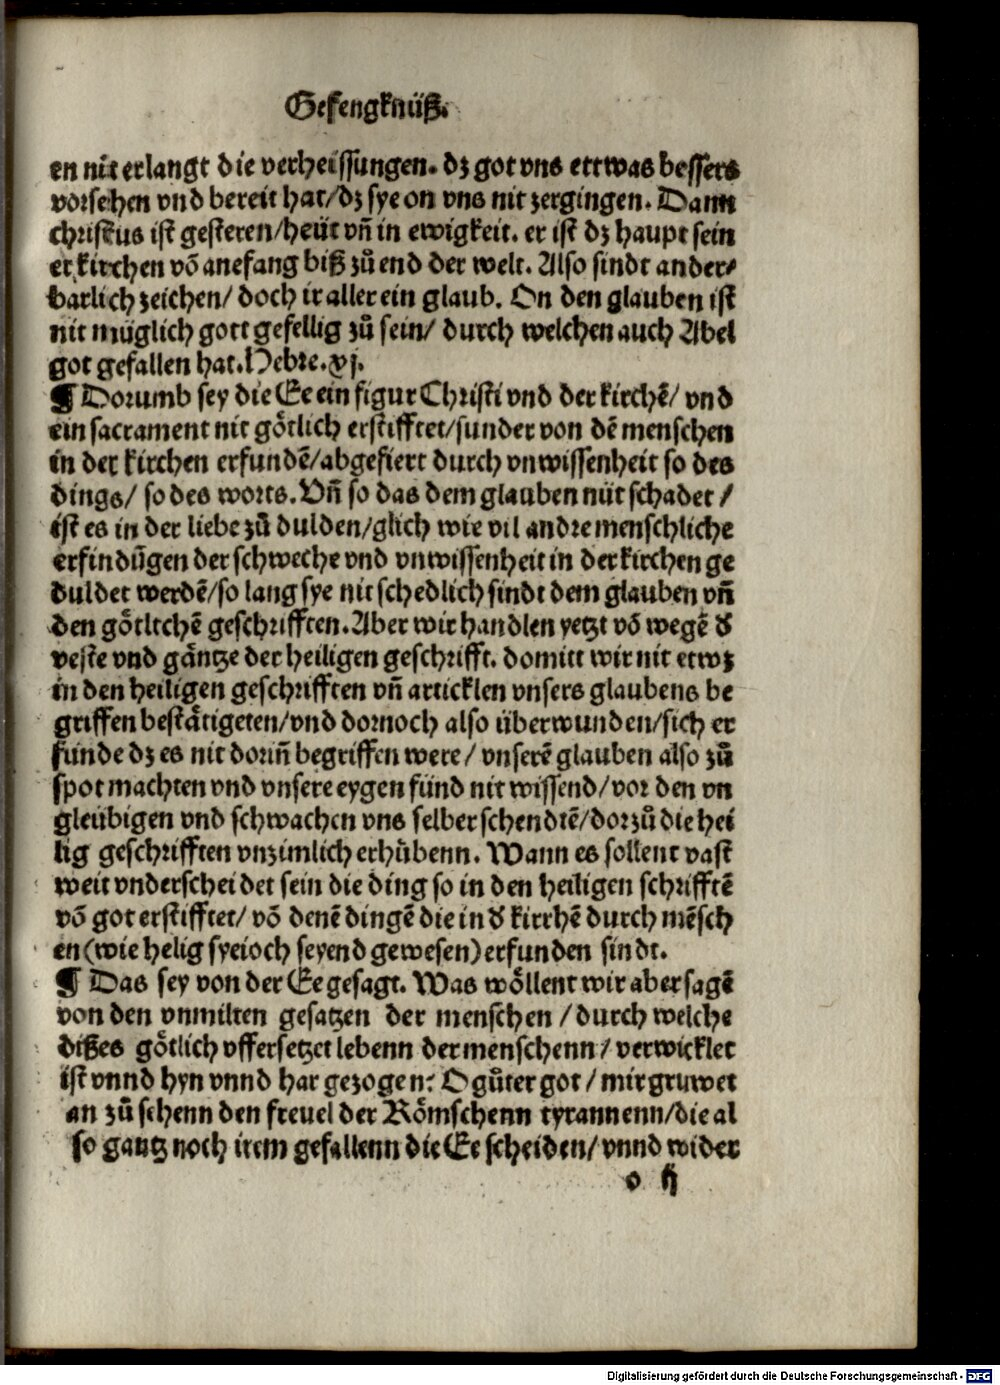 Gefengknüß.
en nit erlangt die verheissungen. dz got vns ettwas bessers
vorsehen vnd bereit hat/dz sye on vns nit zergingen. Dann
christus ist gesteren/heüt vñ in ewigkeit. er ist dz haupt sein
er kirchen võ anefang biß zů end der welt. Also sindt ander⸗
barlich zeichen/ doch ir aller ein glaub. On den glauben ist
nit müglich gott gefellig zů sein/ durch welchen auch Abel
got gefallen hat. Hebre. xj.
¶ Dorumb sey die Ee ein figur Christi vnd der kirchẽ/ vnd
ein sacrament nit götlich erstifftet/sunder von dẽ menschen
in der kirchen erfundẽ/abgefiert durch vnwissenheit so des
dings/ so des worts. Vñ so das dem glauben nüt schadet/
ist es in der liebe zů dulden/glich wie vil andre menschliche
erfindũgen der schweche vnd vnwissenheit in der kirchen ge
duldet werdẽ/so lang sye nit schedlich sindt dem glauben vñ
den götltchẽ geschrifften. Aber wir handlen yetzt võ wegẽ d̕
veste vnd gäntze der heiligen geschrifft. domitt wir nit etwz
in den heiligen geschrifften vñ articklen vnsers glaubens be
griffen bestätigeten/vnd dornoch also überwunden/sich er
funde dz es nit dorin̄ begriffen were/ vnserẽ glauben also zů
spot machten vnd vnsere eygen fünd nit wissend/vor den vn
gleübigen vnd schwachen vns selber schendtẽ/dorzů die hei
lig geschrifften vnzimlich erhůbenn. Wann es sollent vast
weit vnderscheidet sein die ding so in den heiligen schrifftẽ
võ got erstifftet/ võ denẽ dingẽ die in d̕ kirchẽ durch mẽsch
en (wie helig sye ioch seyend gewesen) erfunden sindt.
¶ Das sey von der Ee gesagt. Was wöllent wir aber sagẽ
von den vnmilten gesatzen der menschen /durch welche
dißes götlich vffersetzet lebenn der menschenn/ verwicklet
ist vnnd hyn vnnd har gezogen? O gůter got/ mir gruwet
an zů sehenn den freuel der Römschenn tyrannenn/die al
so gantz noch irem gefallenn die Ee scheiden/ vnnd wider
o ij
Digitalisierung gefördert durch die Deutsche Forschungsgemeinschaft - DFG